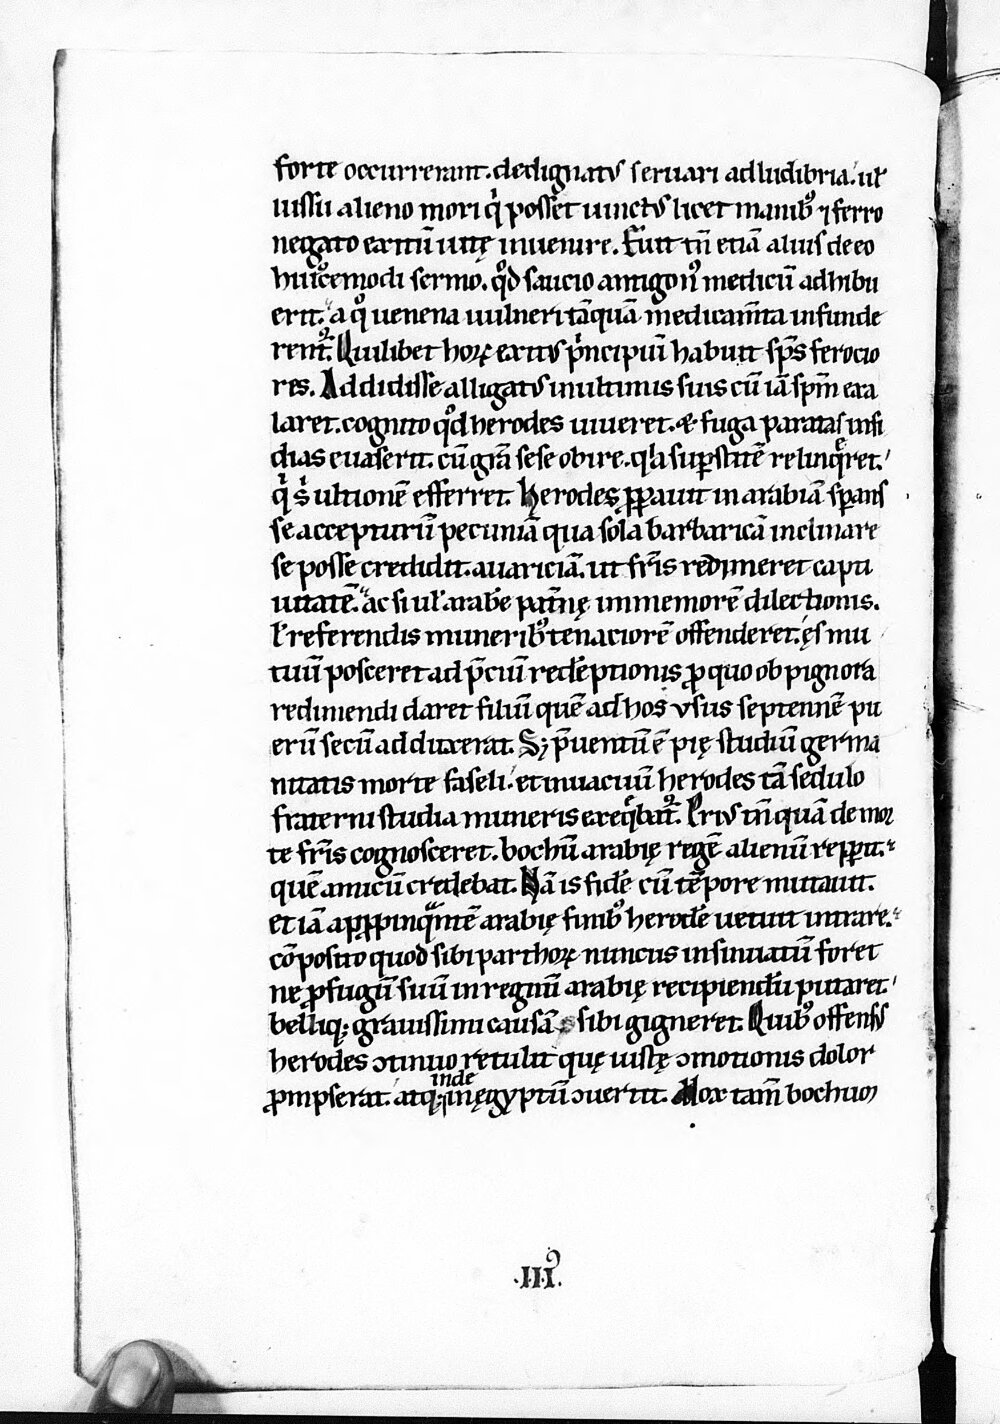 forte occurrerant. dedignatꝰ seruari ad ludibria. uł
uissu alieno mori qͥ posset uinctꝰ licet manibꝰ ⁊ ferro
negato exitū uitę inuenire. Fuit tn̄ etiā alius de eo
huiꝰcemodi sermo. qͦd saucio antigonꝰ medicū adhibu
erit. a qͦ uenena uulneri tāquā medicam̄ta infunde
rent᷑. Quilibet hoꝝ exitꝰ pͥncipiū habuit sp̄s ferocio
res. Addidisse alligatꝰ in ultimis suis cū iā sp̄m exa
laret. cognito qͦd herodes uiueret. & fuga paratas insi
dias euaserit. cū gr̄a sese obire. qͥa suꝑstitē relinqͤret.
qͥ s̄ ultionē efferret. herodes ꝓꝑauit in arabiā sꝑans
se accepturū pecuniā qua sola barbaricā inclinare
se posse credidit. auariciā. ut fr̄is redimeret capti
uitatē. ac si uł arabē pat̄nę immemorē dilectionis.
ł referendis muneribꝰ tenaciorē offenderet. ęs mu
tuū posceret ad p̄ciū redēptionis ꝓ quo ob pignora
redimendi daret filiū quē ad hos vsus septennē pu
erū secū adduxerat. Sꝫ p̄uentū ē pię studiū germa
nitatis morte faseli. et in uacuū herodes tā sedulo
fraterni studia muneris exeqͥbat᷑. Priꝰ tn̄ quā de mor
te fr̄is cognosceret. bochū arabię regē alienū repꝑit.
quē amicū credebat. Nā is fidē cū tēpore mutauit.
et iā apꝓpinqᷓntē arabię finibꝰ herodē uetuit intrare.
cōposito quod sibi parthoꝝ nuncius insinuatū foret
ne ꝓfugū suū in regnū arabię recipiendū putaret.
belliqꝫ grauissimi causā sibi gigneret. Quibꝰ offensꝰ
herodes ↄtinuo retulit quę iustę ↄmotionis dolor
ꝓmpserat. atqꝫ inde in ęgyptū ↄuertit. Mox tam̄ bochum
.III.ꝰ